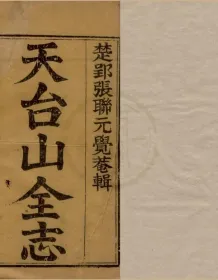 楚郢張聯元覺菴輯
天台山全志